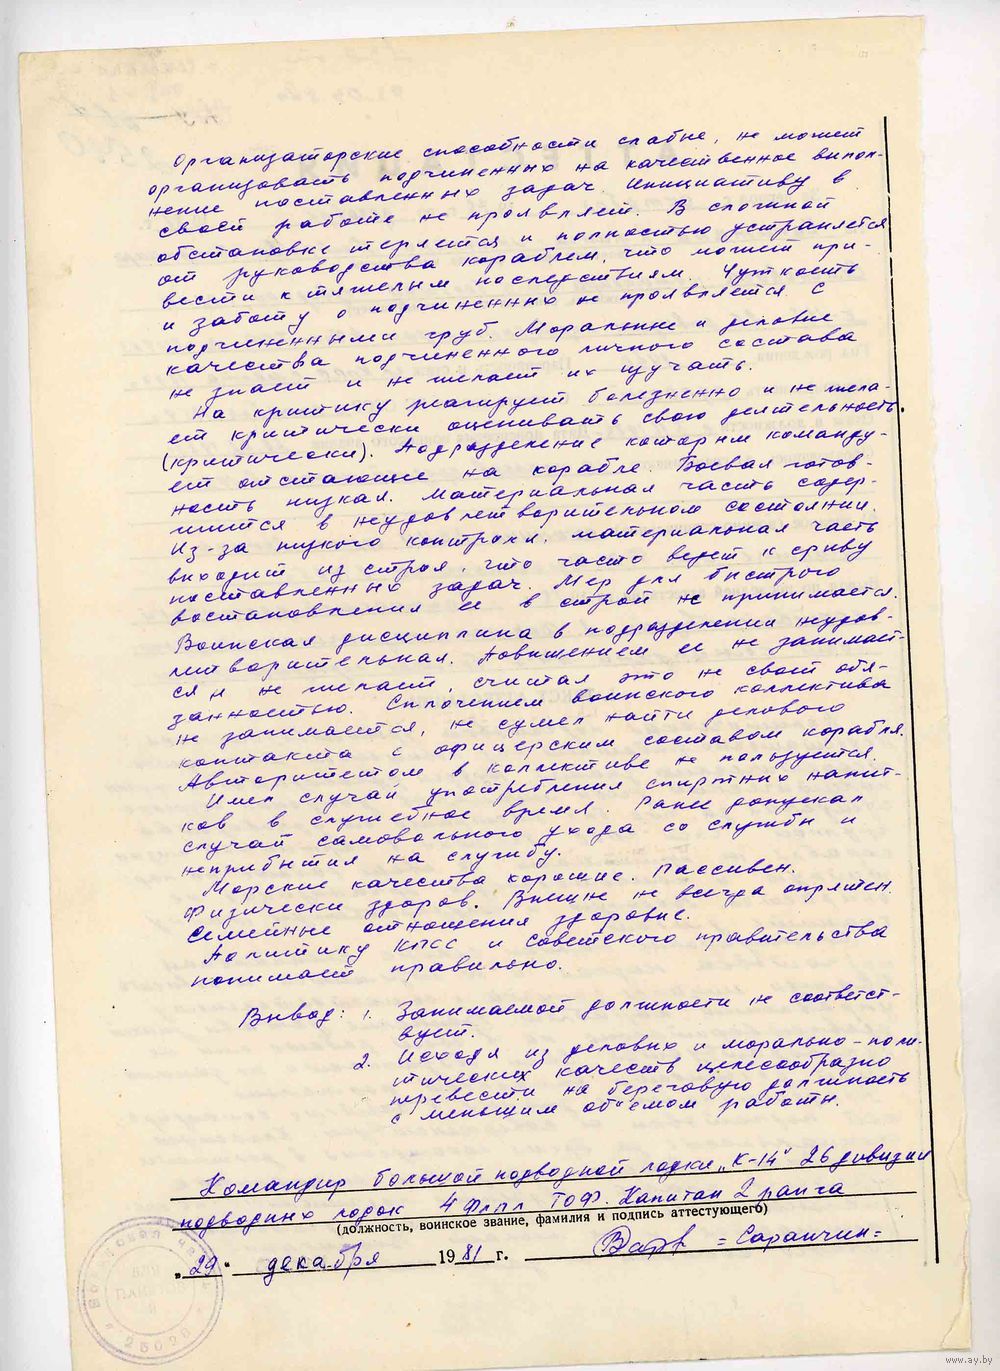 Организаторские способности слабые, не может
организовать подчиненных на качественное выпол-
нение поставленных задач. Инициативу в
своей работе не проявляет. В сложной
обстановке теряется и полностью устраняется
от руководства кораблем, что может при-
вести к тяжелым последствиям. Чуткость
и заботу о подчиненных не проявляется. С
подчиненными груб. Моральные и деловые
качества подчиненного личного состава
не знает и не желает их изучать.
На критику реагирует болезненно и не жела-
ет критически оценивать свою деятельность.
(критически). Подразделение которым команду-
ет отстающее на корабле. Боевая готов-
ность низкая. Материальная часть содер-
жится в неудовлетворительном состоянии.
Из-за низкого контроля, материальная часть
выходит из строя, что часто ведет к срыву
поставленных задач. Мер для быстрого
востановления ее в строй не принимается.
Воинская дисциплина в подразделении неудов-
летворительная. Повышением ее не занимает-
ся и не желает, считая это не своей обя-
занностью. Сплочением воинского коллектива
не занимается, не сумел найти делового
контакта с офицерским составом корабля.
Авторитетом в коллективе не пользуется.
Имел случай употребления спиртных напит-
ков в служебное время. Ранее допускал
случай самовольного ухода со службы и
неприбытия на службу.
Морские качества хорошие. Пассивен.
Физически здоров. Внешне не всегда опрятен.
Семейные отношения здоровые.
Политику КПСС и Советского правительства
понимает правильно.
Вывод: 1. Занимаемой должности не соответст-
вует.
2. Исходя из деловых и морально-поли-
тических качеств целесообразно
перевести на береговую должность
с меньшим об"емом работы.
Командир большой подводной лодки „К-14" 26 дивизии
подводных лодок 4 ФлПЛ ТОФ. Капитан 2 ранга
(должность, воинское звание, фамилия и подпись аттестующего)
„29" декабря 1981 г. = Саранчин =
25026
www.ay.by